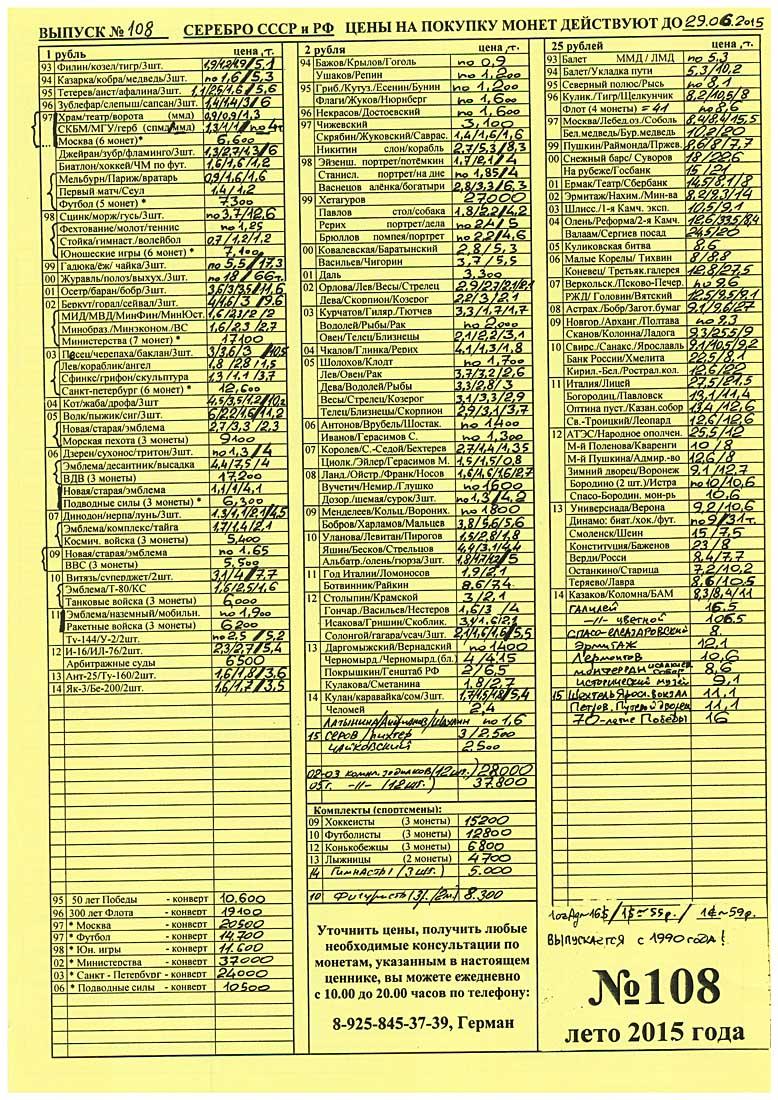 ВЫПУСК № 108 СЕРЕБРО СССР и РФ ЦЕНЫ НА ПОКУПКУ МОНЕТ ДЕЙСТВУЮТ ДО 29.06.2015
1 рубль цена ,т.
93 Филин/козел/тигр/3шт.
94 Казарка/кобра/медведь/3шт. по 1,6 / 5,3
95 Тетерев/аист/афалина/3шт. 1,1/2,5/1,6/5,6
96 Зублефар/слепыш/сапсан/3шт. 1,4/1,4/3/6
97 Храм/театр/ворота (ммд) 0,9/0,9/1,3
СКБМ/МГУ/герб (спмд/ммд) 1,3/1/1
Москва (6 монет) * 6.600
Джейран/зубр/фламинго/3шт. 1,3/2,7/1,3/6
Биатлон/хоккей/ЧМ по фут. 1,6/1,6/1,2
Мельбурн/Париж/вратарь 0,9/1,6/1,6
Первый матч/Сеул 1,4/1,2
Футбол (5 монет) * 7.300
98 Сцинк/морж/гусь/3шт. по 3,7/12,6
Фехтование/молот/теннис по 1,25
Стойка/гимнаст./волейбол 0,7/1,2/1,2
Юношеские игры (6 монет) * 7.100
99 Гадюка/ёж/ чайка/3шт. по 5,5/17,3
00 Журавль/полоз/выхух./3шт. по 18 / 66т.
01 Осетр/баран/бобр/3шт. 3,6/3,5/3,5/11,6
02 Беркут/горал/сейвал/3шт. 4/1,6/3/9,6
МИД/МВД/МинФин/МинЮст. 1,6/23/2/2
Минобраз./Минэконом./ВС 1,6/2,3/2,7
Министерства (7 монет) * 17100
03 Песец/черепаха/баклан/3шт. 3/3,6/3/10,5
Лев/коралик/ангел 1,8/28/1,5
Сфинкс/грифон/скульптура 1,3/1,1/3,7
Санкт-петербург (6 монет) * 12,600
04 Кот/жаба/дрофа/3шт
05 Волк/пыжик/сиг/3шт. 6/2,2/1,6/11,2
Новая/старая/эмблема 2,7/3,3/2,3
Морская пехота (3 монеты) 9100
06 Дзерен/сухонос/тритон/3шт. по 1,3 / 4
Эмблема/десантник/высадка 4,4/7,5/4
ВДВ (3 монеты) 17.200
Новая/старая/эмблема 1,1/1,4/1
Подводные силы (3 монеты) * 6.300
07 Динодон/нерпа/лунь/3шт. 1,3/1,1/2,1/4,5
Эмблема/комплекс/тайга 1,7/1,4/2,1
Космич. войска (3 монеты) 5,400
09 Новая/старая/эмблема по 1.65
ВВС (3 монеты) 5,500
10 Витязь/суперджет/2шт. 3,1/4/7,7
Эмблема/Т-80/КС 1,6/2,5/1,6
Танковые войска (3 монеты) 6,000
11 Эмблема/наземный/мобильн. по 1,900
Ракетные войска (3 монеты) 6200
Ту-144/У-2/2шт. по 2,5 / 5,2
12 И-16/ИЛ-76/2шт. 23/2,7/5,4
Арбитражные суды 6500
13 Ант-25/Ту-160/2шт. 1,6/1,8/3,6
14 Як-3/Бе-200/2шт. 1,6/1,7/3,5
95 50 лет Победы - конверт 10.600
96 300 лет Флота - конверт 19100
97 * Москва - конверт 20500
97 * Футбол - конверт 14.700
98 * Юн. игры - конверт 11.600
02 * Министерства - конверт 37000
03 * Санкт - Петербург - конверт 24000
06 * Подводные силы - конверт 10500
2 рубля цена ,т.
94 Бажов/Крылов/Гоголь по 0,9
Ушаков/Репин по 1.200
95 Гриб./Кутуз./Есенин/Бунин по 1.200
Флаги/Жуков/Нюрнберг по 1,600
96 Некрасов/Достоевский по 1.600
97 Чижевский 3,100
Скрябин/Жуковский/Саврас. 1,4/1,6/1,6
Никитин слон/корабль 2,7/5,3/8,3
98 Эйзенш. портрет/потёмкин 1,7/2,1/4
Станисл. портрет/на дне по 1,85/4
Васнецов алёнка/богатыри 2,8/3,3/6,3
99 Хетагуров 27000
Павлов стол/собака 1,8/2,2/4,2
Рерих портрет/дела по 2,4/5
Брюллов помпея/портрет по 2,2/4,6
00 Ковалевская/Баратынский 2,8/5,3
Васильев/Чигорин 3,7/5,5
01 Даль 3,300
02 Орлова/Лев/Весы/Стрелец
Дева/Скорпион/Козерог 2,2/3/2,1
03 Курчатов/Гиляр./Тютчев 3,3/1,7/1,7
Водолей/Рыбы/Рак по 2,000
Овен/Телец/Близнецы 2,1/2,2/3,1
04 Чкалов/Глинка/Рерих 4,1/1,3/1,8
05 Шолохов/Клодт по 1,700
Лев/Овен/Рак 3,7/3,2/2,6
Дева/Водолей/Рыбы 3,3/2,8/3
Весы/Стрелец/Козерог 3,1/3,3/2,9
Телец/Близнецы/Скорпион 2,9/3,1/3,7
06 Антонов/Врубель/Шостак. по 1400
Иванов/Герасимов С. по 1,300
07 Королев/С.-Седой/Бехтерев 2,7/1,4/1,35
Циолк./Эйлер/Герасимов М. 1,5/1,5/0,8
08 Ланд./Ойстр./Франк/Носов 1,6/1,6/1,6/2,7
Вучетич/Немир./Глушко по 1600
Дозор./шемая/сурок/3шт. по 1,3 / 4,2
09 Менделеев/Кольц./Вороних. по 1800
Бобров/Харламов/Мальцев 3,8/5,6/5,6
10 Уланова/Левитан/Пирогов 1,5/2,8/1,8
Яшин/Бесков/Стрельцов 4,4/3,1/4,4
Альбатр./олень/гюрза/3шт.
11 Год Италии/Ломоносов 1,9/2,1
Ботвинник/Райкин 8.6/34.
12 Столыпин/Крамской 3/2,1
Гончар./Васильев/Нестеров 1,6/3/4
Исакова/Гришин/Скоблик. 3,4/1.6/2,1
Солонгой/гагара/усач/3шт. 2,1/1,6/1,6/5,5
13 Даргомыжский/Вернадский по 1400
Черномырд./Черномырд.(бл.) 4/415
Покрышкин/Генштаб РФ 2/6,5
Кулакова/Сметанина 1,8/2,7
14 Кулан/каравайка/сом/3шт. 1,7/1,5/1,8/5,4
Челомей 2,4
Латынина/Андрианов/Шахлин по 1,6
15 Серов/Рихтер 3/2,500
Чайковский 2.500
02-03 компл. зодиаков (12шт.) 28000
05г. -//- (12шт.) 37.800
Комплекты (спортсмены):
09 Хоккеисты (3 монеты) 15200
10 Футболисты (3 монеты) 12800
12 Конькобежцы (3 монеты) 6800
13 Лыжницы (2 монеты) 4700
14 Гимнасты (3шт.) 5.000
8.300
Уточнить цены, получить любые
необходимые консультации по
монетам, указанным в настоящем
ценнике, вы можете ежедневно
с 10.00 до 20.00 часов по телефону:
8-925-845-37-39, Герман
25 рублей цена ,т.
93 Балет ММД / ЛМД по 5.3
94 Балет/Укладка пути 5,3/10,2
95 Северный полюс/Рысь по 8,1
96 Кулик./Тигр/Щелкунчик 8,2/10,5/8
Флот (4 монеты) = 41 по 8.6
97 Москва/Лебед.оз./Соболь 8,4/8.4/15,5
Бел.медведь/Бур.медведь 10,2/20
99 Пушкин/Раймонда/Пржев. 8,6/8/7,7
00 Снежный барс/ Суворов 18/22,6
На рубеже/Госбанк 15/21
01 Ермак/Театр/Сбербанк 14,5/8,1/8
02 Эрмитаж/Нахим./Мин-ва 8,2/9,3/14
03 Шлисс./1-я Камч. эксп. 10,5/9,1
04 Олень/Реформа/2-я Камч. 12,6/33,5/8,4
Валаам/Сергиев посад 24,5/20
05 Куликовская битва 8,6
06 Малые Корелы/ Тихвин 8/8.8
Коневец/ Третьяк.галерея 12.8/27,5
07 Верхотурск./Псково-Печер. по 9.6
РЖД/ Головин/Вятский 12,5/9,5/9,1
08 Астрах./Бобр/Загот.Бумаг 9.1/9,6/27
09 Новгор./Арханг./Полтава по 9.3
Сканов/Коломна/Ладога 9,3/25,5/9
10 Свирс./Санакс./Ярославль 9.1/10,5/9,2
Банк России/Хмелита 22,5/8,1
Кирил.-Бел./Рострал.кол. 12,6/20
11 Италия/Лицей 27,5/21,5
Богородиц./Павловск 13,1/11,4
Оптина пуст./Казан.собор 13,4/12,6
Ств.Троицк./Леопард 12.6/12,6
12 АТЭС/Народное ополчен. 25,5/12
М-й Поленова/Кваренги 10/8
М-й Пушкина/Адмир-во 12,6/8
Зимний дворец/Воронеж 9.1/12.7
Бородино (2 шт.)/Истра по 10/10,6
Спасо-Бородин. мон-рь 10.6
13 Универсиада/Верона 9,2/10,6
Динамо: биат./хок./фут. по 9/31т.
Смоленск/Шеин 15/7,5
Конституция/Баженов 23/8
Верди/Росси 8.4/7,7
Останкино/Старица 7,2/10,2
Теряево/Лавра 8.6/10.5
14 Казаков/Коломна/БАМ 8,3/8,4/11
Галилей 16.5
-//- цветной 106.5
Спасо-Елеазаровский 8.
Эрмитаж 12.1
Лермонтов 10,6
Монферран исаакиев. собор 8,6
исторический музей 9,1
15 Шехтель Яросл. Вокзал 11.1
Петров. Путевой дворец 11,1
70-летие Победы 16
1$ = 55р. / 1€ ~ 59р.
Выпускается с 1990 года!
№108
лето 2015 года